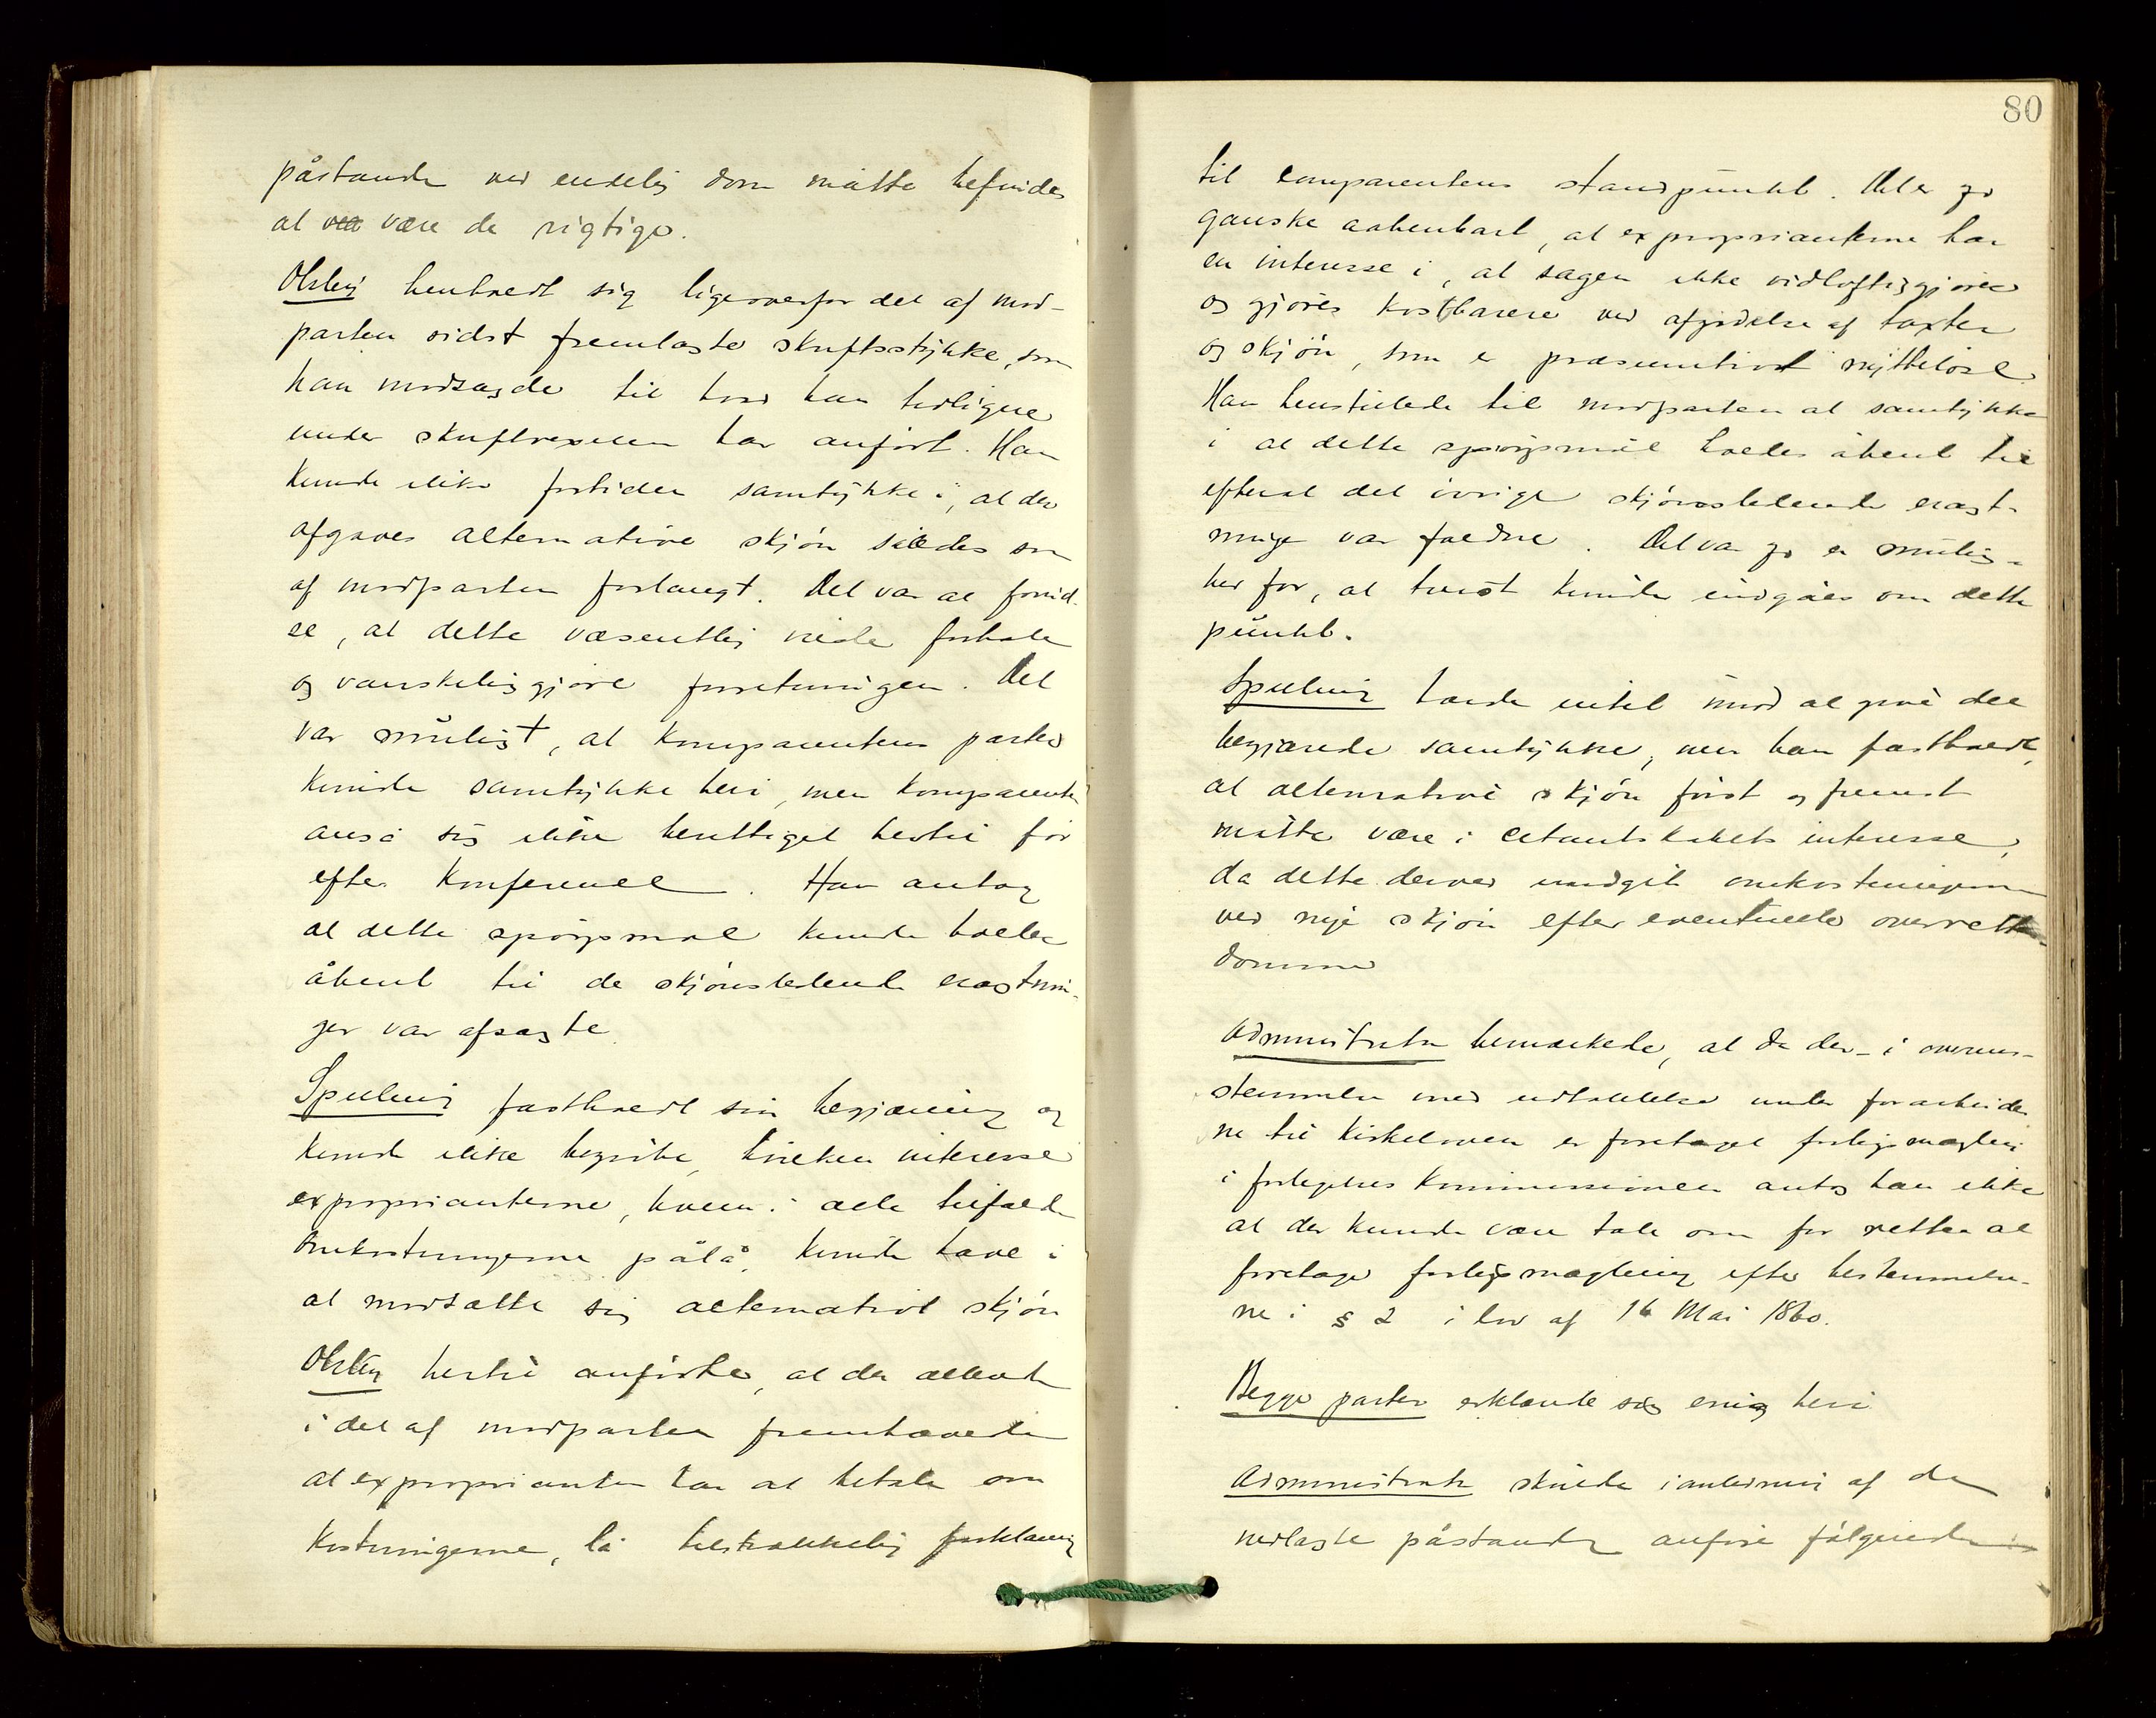 påstande ved endelig dom måtte befindes
at være de rigtige.
Olsby henholdt sig ligeoverfor det af mod-
parten sidst fremlagte skriftsstykke, som
han modsagde til hvad han tidligere
under skriftvexelen har anført. Han
kunde ikke fortiden samtykke i, at der
afgaves alternative skjøn således som
af modparten forlangt. Det var at forud-
se, at dette væsentlig vilde forhale
og vanskeliggjøre forretningen. Det
var muligt, at komparentens parter
kunde samtykke heri, men komparenten
anså sig ikke berettiget hertil før
efter konference. Han antog
at dette spørgsmål kunde holdes
åbent til de skjønsledende eragtnin-
ger var afsagte.
Speilberg fastholdt sin begjæring og
kunde ikke begribe, hvilken interesse
exproprianterne, hvem i alle tilfælde
omkostningerne pålå, kunde have i
at modsætte sig alternativt skjøn
Olsby hertil anførte, at der allerede
i det af modparten fremhævede
at exproprianten har at betale om
kostningerne, lå tilstrækkelig forklaring
80
til comparentens standpunkt. Det er jo
ganske aabenbart, at exproprianterne har
en interesse i, at sagen ikke vidløftiggjøres
og gjøres kostbarere ved afgivelse af taxter
og skjøn, som er præsumtivt nytteløse
Han henstillede til modparten at samtykke
i at dette spørgsmål holdes åbent til
efterat det øvrige skjønsledende eragt-
ninger var faldne. Det var jo en mulig-
hed for, at tvist kunde undgåes om dette
punkt.
Speilberg havde intet imod at give det
begjærede samtykke, men han fastholdt,
at alternative skjøn først og fremst
måtte være i citantskabets interesse,
da dette derved undgik omkostningerne
ved nye skjøn efter eventuelle overretts-
domme
Administrator bemærkede, at da der i overens-
stemmelse med udtalelse under forarbeider
ne til kirkeloven er foretaget forligsmægling
i forligelseskommissionen antog han ikke
at der kunde være tale om for retten at
foretage forligsmægling efter bestemmelser-
ne i § 2 i lov af 16 Mai 1860.
Begge parter erklærede sig enig heri
Administrator skulde i anledning af de
nedlagte påstande anføre følgende